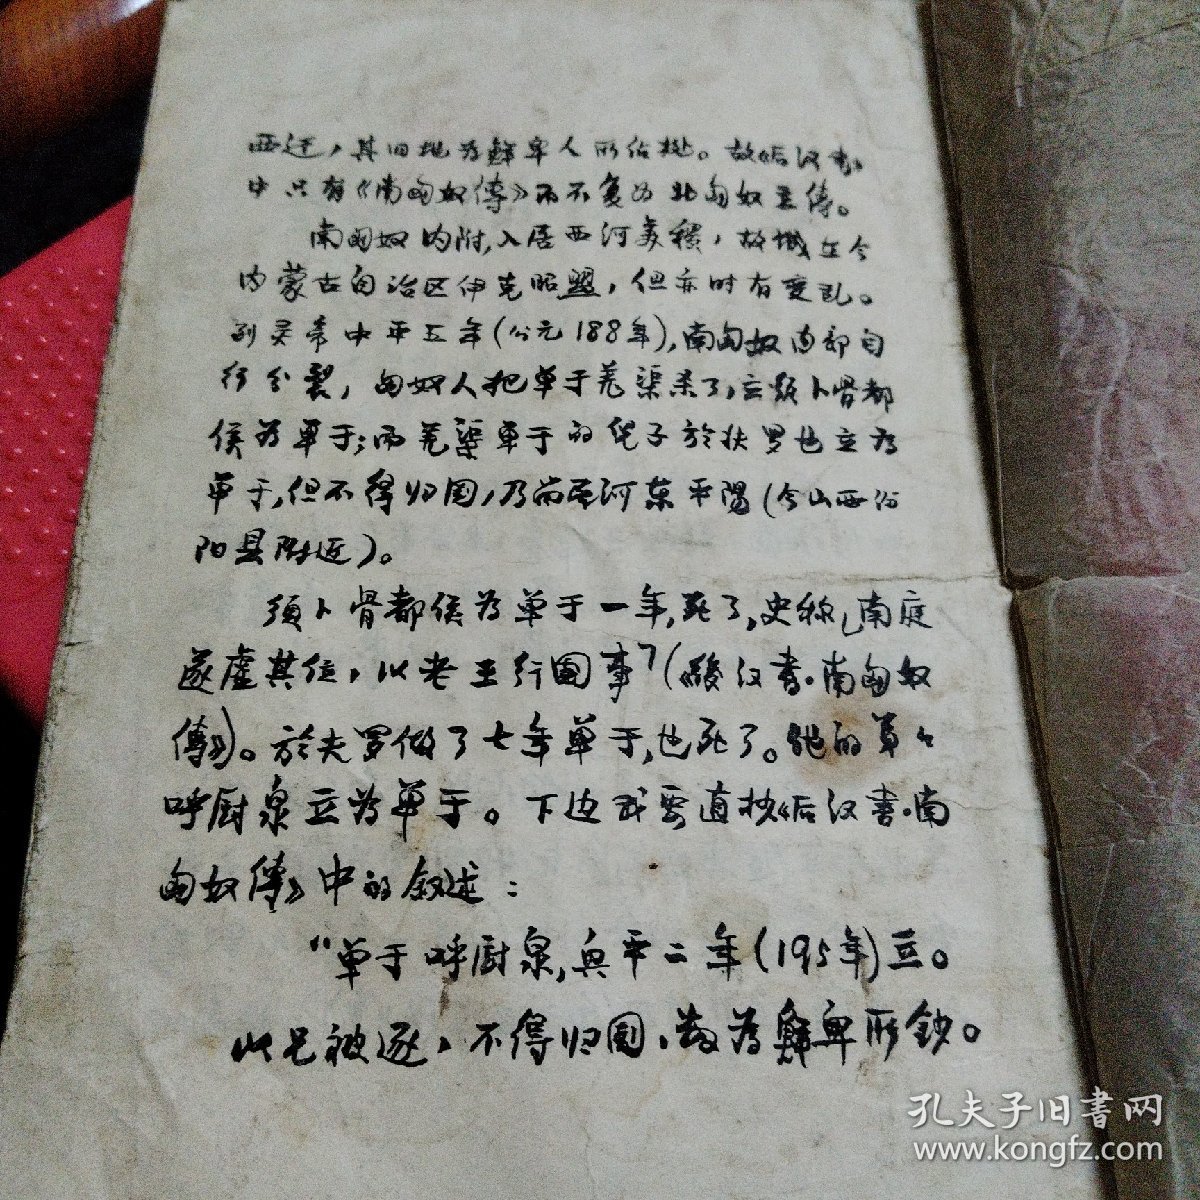 西迁，其旧地为鲜卑人所佔据。故《后汉书》
中只有《南匈奴传》而不复为北匈奴立传。
南匈奴内附，入居西河美稷，故城在今
内蒙古自治区伊克昭盟，但亦时有变乱。
到灵帝中平五年（公元188年），南匈奴内部自
行分裂，匈奴人把单于羌渠杀了，立须卜骨都
侯为单于；而羌渠单于的儿子於扶罗也立为
单于，但不得归国，乃而至河东平陽（今山西汾
阳县附近）。
须卜骨都侯为单于一年，死了，史称「南庭
遂虚其位，以老王行国事」（《後汉书·南匈奴
傳》）。於夫罗做了七年单于，也死了。他的弟々
呼厨泉立为单于。下边我要直抄《后汉书·南
匈奴傳》中的叙述：
“单于呼厨泉，兴平二年（195年）立。
以兄被逐，不得归国，数为鲜卑所鈔。
孔夫子旧書网
www.kongfz.com